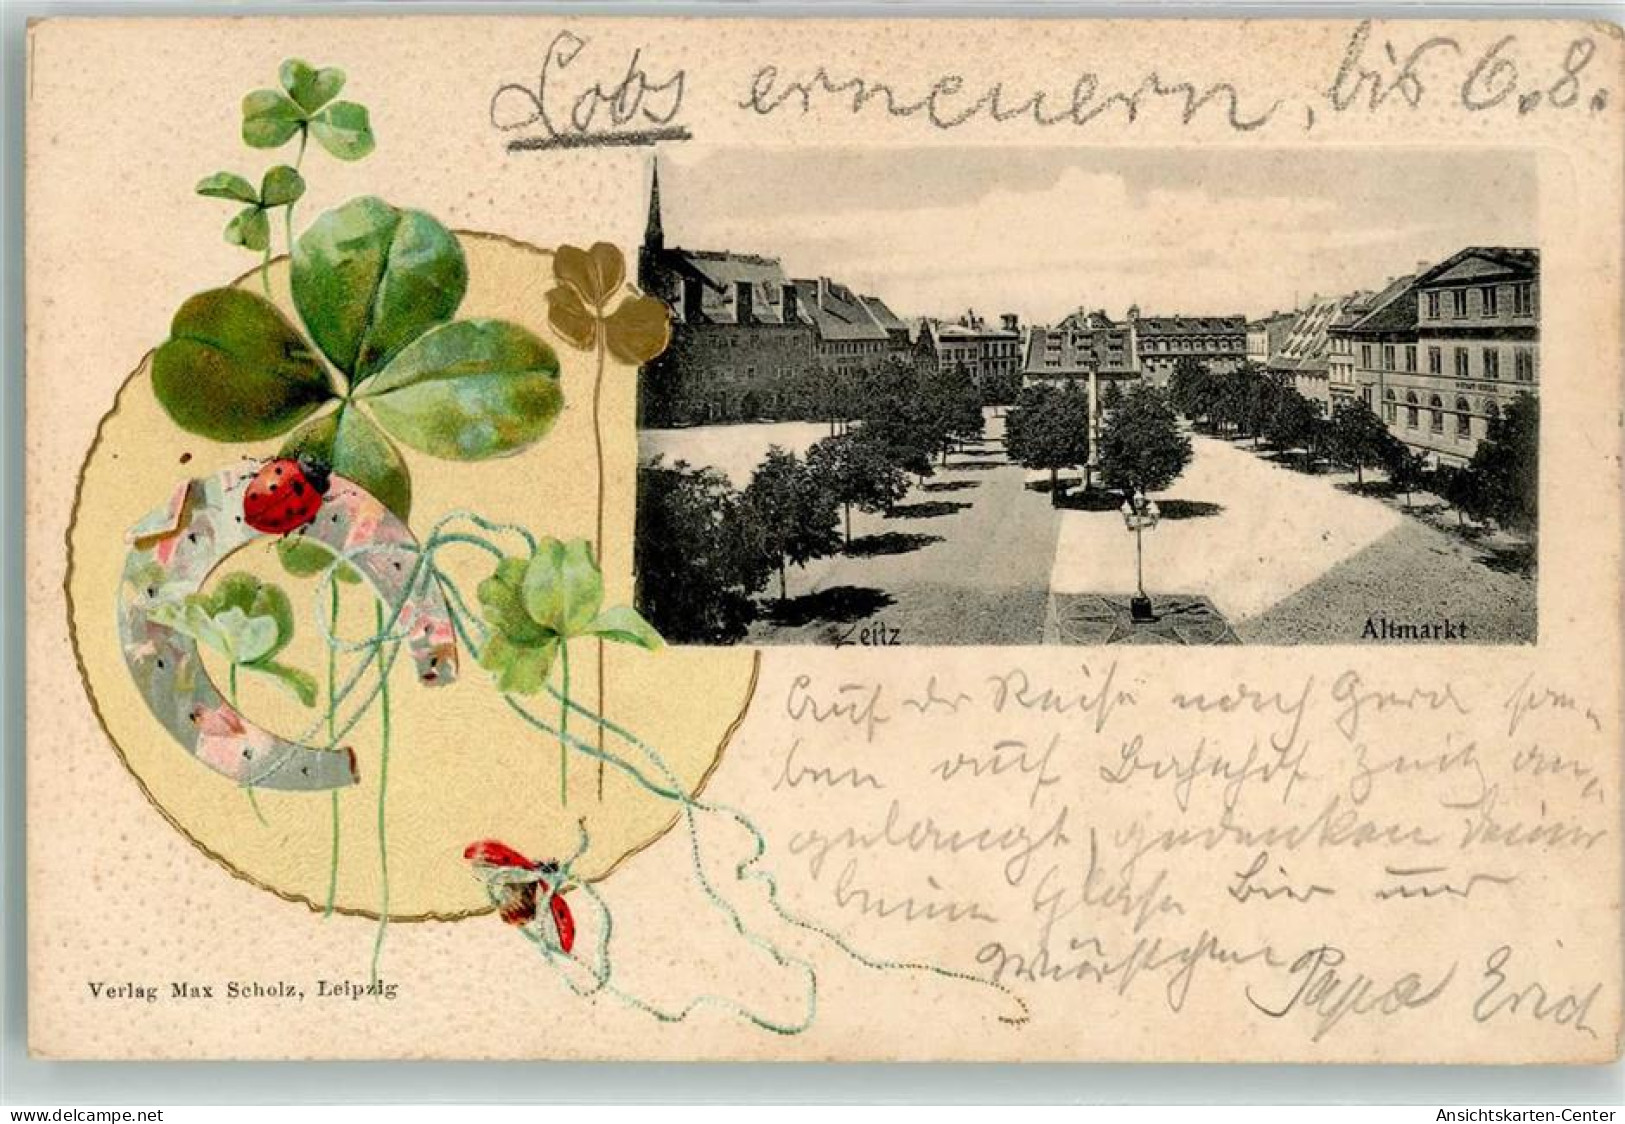 Lobs erneuern, bis 6.8.
Zeitz
Altmarkt
Auf der Reise nach Gera soe-
ben auf Bahnhof Zeitz an-
gelangt, gedenken Deiner
beim Glase Bier und
Würstchen Papa Erich
Verlag Max Scholz, Leipzig
oldthing.com
Ansichtskarten-Center